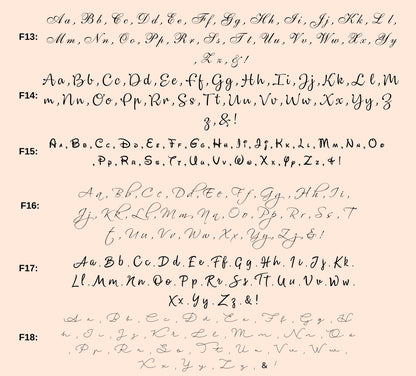 Aa, Bb, Cc, Dd, Ee, Ff, Gg, Hh, Ii, Jj, Kk, Ll,
F13: Mm, Nn, Oo, Pp, Rr, Ss, Tt, Uu, Vv, Ww, Xx, Yy
, Zz, & !
Aa, Bb, Cc, Dd, Ee, Ff, Gg, Hh, Ii, Jj, Kk, Ll, M
F14: m, Nn, Oo, Pp, Rr, Ss, Tt, Uu, Vv, Ww, Xx, Yy, Z
z, & !
F15: Aa, Bb, Cc, Dd, Ee, Ff, Gg, Hh, Ii, Jj, Kk, Ll, Mm, Nn, Oo
, Pp, Rr, Ss, Tt, Uu, Vv, Ww, Xx, Yy, Zz, & !
Aa, Bb, Cc, Dd, Ee, Ff, Gg, Hh, Ii,
F16: Jj, Kk, Ll, Mm, Nn, Oo, Pp, Rr, Ss, T
t, Uu, Vv, Ww, Xx, Yy, Zz, & !
F17: Aa, Bb, Cc, Dd, Ee, Ff, Gg, Hh, Ii, Jj, Kk,
Ll, Mm, Nn, Oo, Pp, Rr, Ss, Tt, Uu, Vv, Ww,
Xx, Yy, Zz, & !
Aa, Bb, Cc, Dd, Ee, Ff, Gg, H
F18: h, Ii, Jj, Kk, Ll, Mm, Nn, Oo
, Pp, Rr, Ss, Tt, Uu, Vv, Ww,
Xx, Yy, Zz, & !